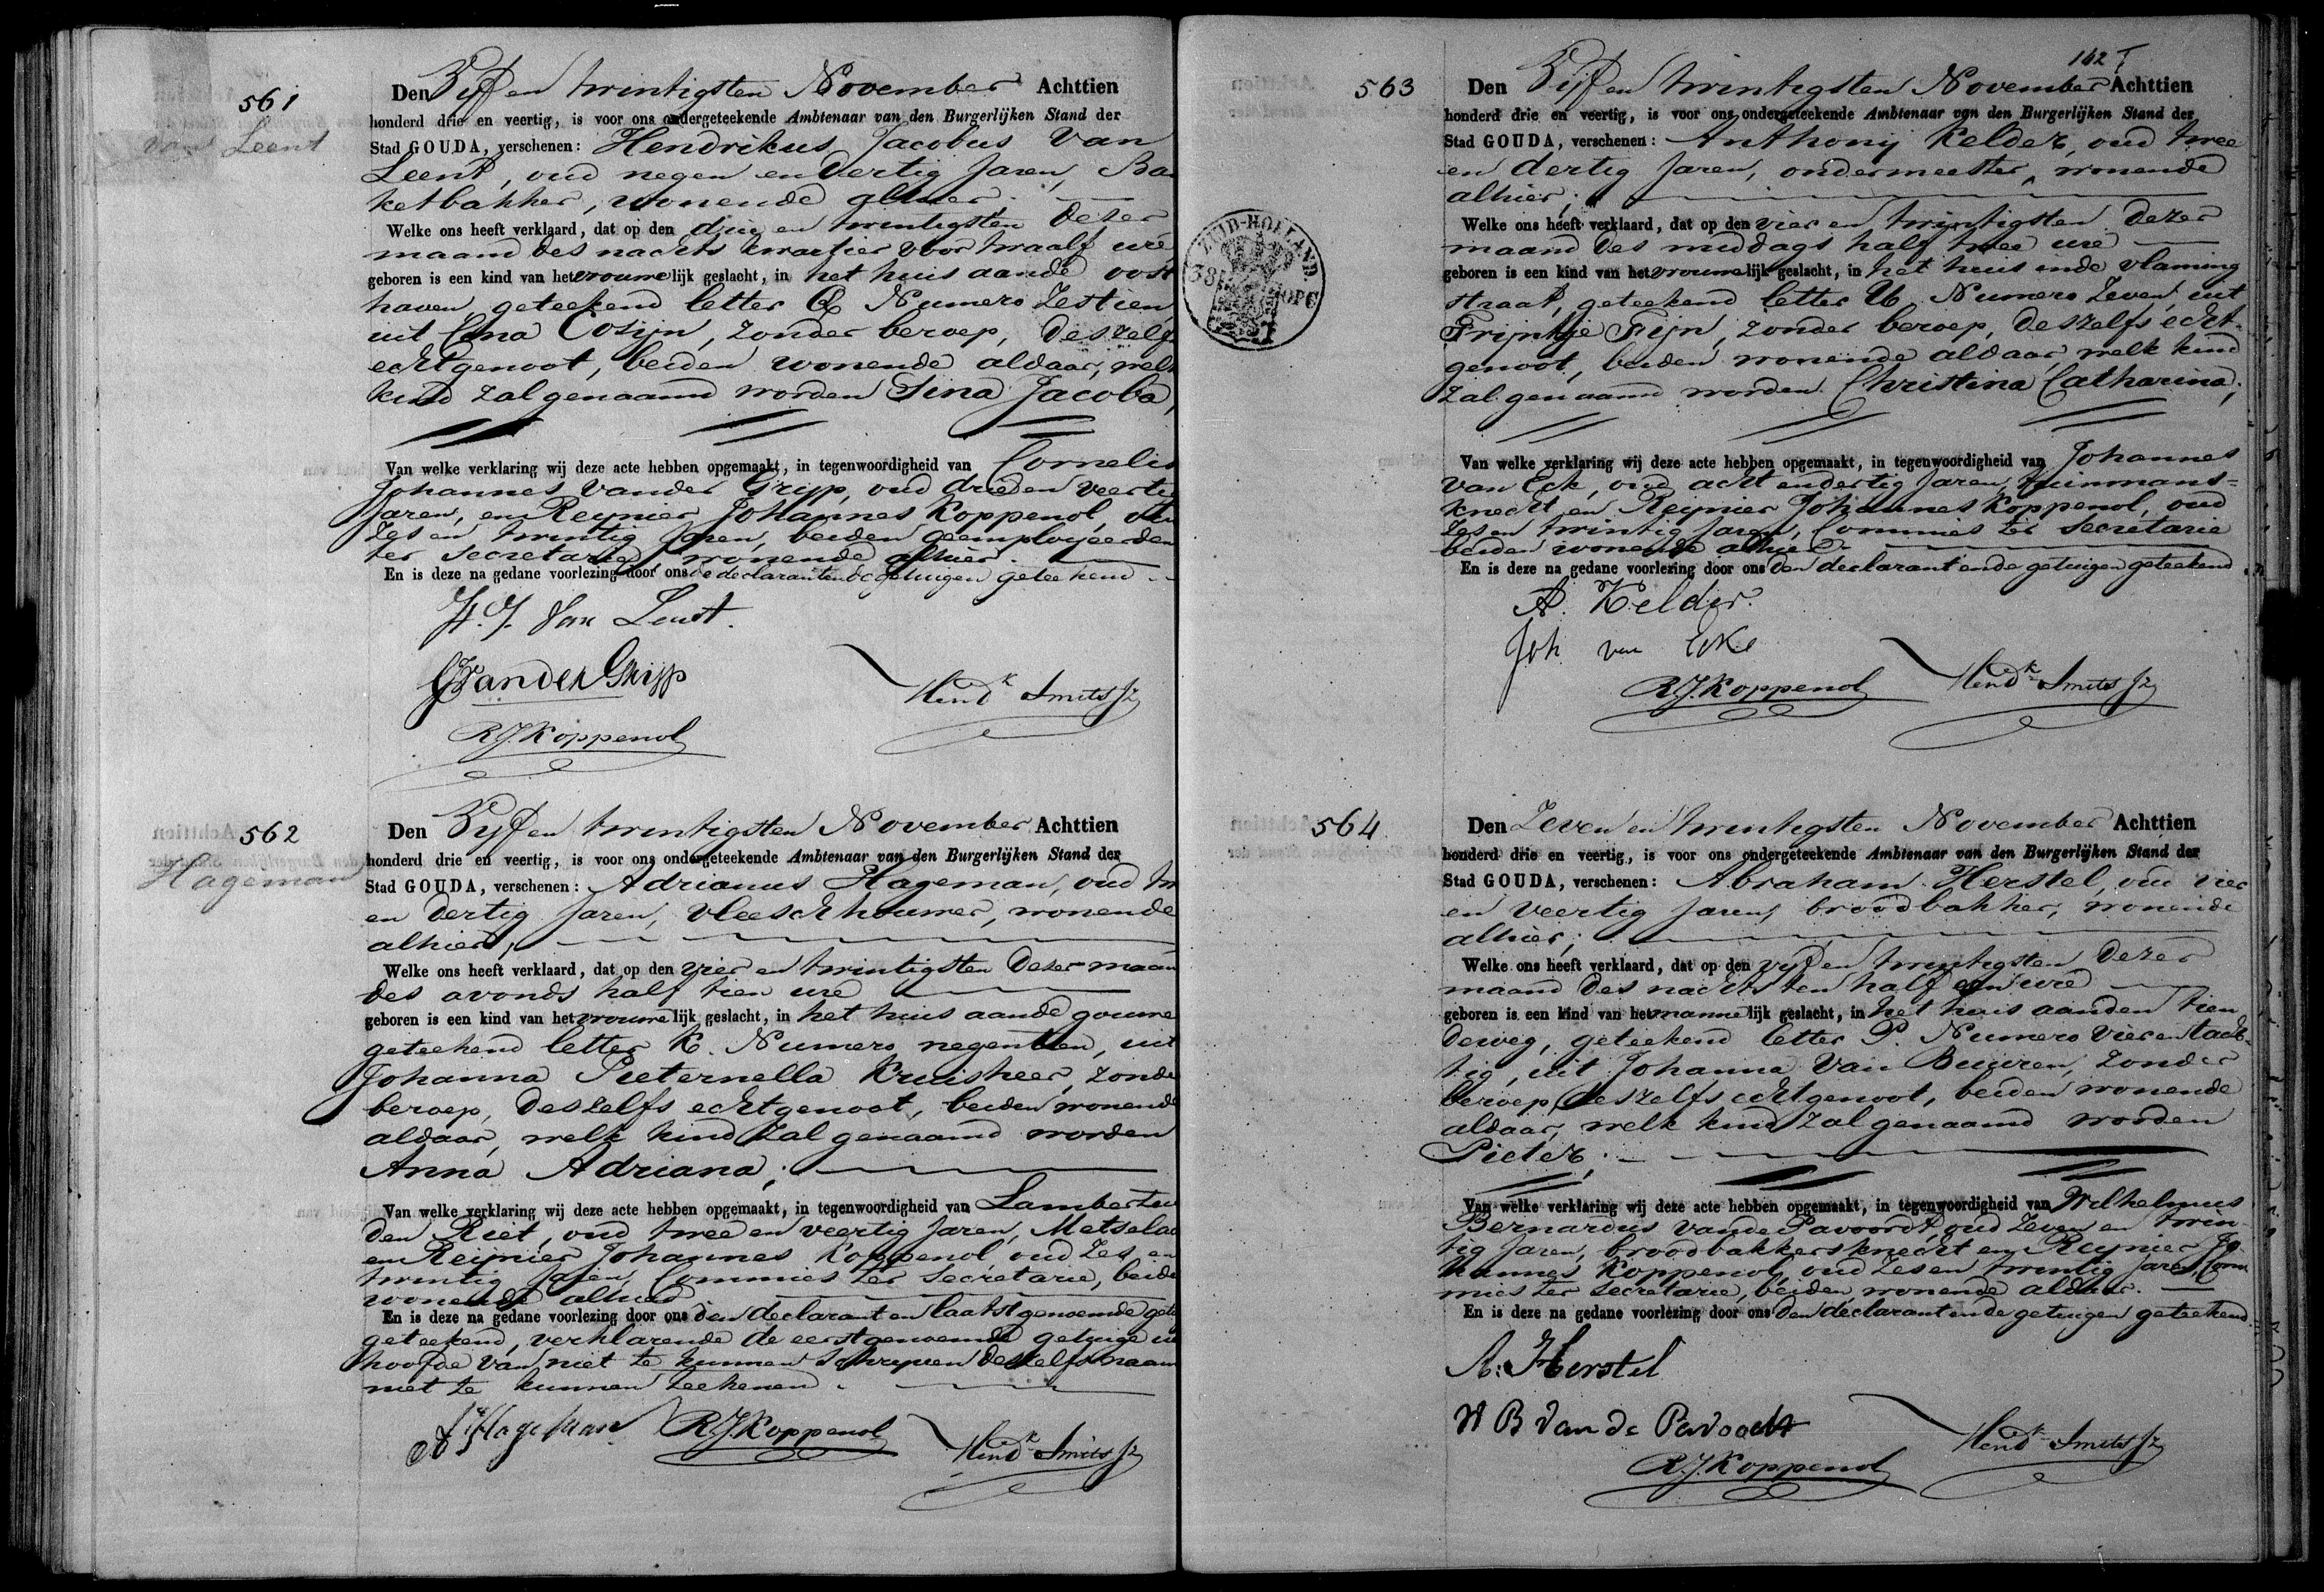 561
van Leent
Den Vijf en twintigsten November Achttien
honderd drie en veertig, is voor ons ondergeteekende Ambtenaar van den Burgerlijken Stand der
Stad GOUDA, verschenen: Hendrikus Jacobus Van
Leent, oud negen en dertig Jaren, Ban
ketbakker, wonende alhier;
Welke ons heeft verklaard, dat op den drie en twintigsten dezer
maand des nachts kwartier voor twaalf ure
geboren is een kind van het vrouwelijk geslacht, in het huis aande oost
haven, geteekend letter Numero Zestien,
uit Cosijn, zonder beroep, deszelfs
echtgenoot, beiden wonende aldaar, welk
kind zal genaamd worden Sina Jacoba,
Van welke verklaring wij deze acte hebben opgemaakt, in tegenwoordigheid van Cornelis
Johannes Vander Gripp, oud drie en veertig
Jaren, en Reijnier Johannes Koppenol, oud
Zes en twintig Jaren, beiden geemployeerden
ter Secretarie, wonende alhier.
En is deze na gedane voorlezing door ons de declarant en de getuigen geteekend.
H. J. Van Leent.
Vander Gripp
R.J. Koppenol
Hendk Smits Jz
562
Hageman
Den Vijf en twintigsten November Achttien
honderd drie en veertig, is voor ons ondergeteekende Ambtenaar van den Burgerlijken Stand der
Stad GOUDA, verschenen: Adrianus Hageman, oud tw
en dertig Jaren, vleeschhouwer, wonende
alhier;
Welke ons heeft verklaard, dat op den vier en twintigsten dezer maan
des avonds half tien ure
geboren is een kind van het vrouwelijk geslacht, in het huis aande gouwe
geteekend letter K. Numero negentien, uit
Johanna Pieternella Kruisheer, zonde
beroep, deszelfs echtgenoot, beiden wonende
aldaar, welk kind zal genaamd worden
Anna Adriana;
Van welke verklaring wij deze acte hebben opgemaakt, in tegenwoordigheid van Lambertus
den Riet, oud twee en veertig Jaren, Metselaa
en Reijnier Johannes Koppenol, oud Zes en
twintig Jaren, Commies ter Secretarie, beide
wonende alhier
En is deze na gedane voorlezing door ons den declarant en laatstgenoemde getu
geteekend, verklarende de eerstgenoemde getuige uit
hoofde van niet te kunnen schrijven deszelfs naam
niet te kunnen teekenen.
A Hageman
R.J. Koppenol
Hendk Smits Jz
162
563
Den Vijf en twintigsten November Achttien
honderd drie en veertig, is voor ons ondergeteekende Ambtenaar van den Burgerlijken Stand der
Stad GOUDA, verschenen: Anthonij Kelder, oud twee
en dertig Jaren, ondermeester, wonende
alhier;
Welke ons heeft verklaard, dat op den vier en twintigsten dezer
maand des middags half twee ure
geboren is een kind van het vrouwelijk geslacht, in het huis inde vlaming
straat, geteekend letter Numero Zeven, uit
Trijntje Fijn, zonder beroep, deszelfs echt-
genoot, beiden wonende aldaar, welk kind
zal genaamd worden Christina Catharina;
Van welke verklaring wij deze acte hebben opgemaakt, in tegenwoordigheid van Johannes
van Eck, oud acht en dertig Jaren, tuinmans-
knecht en Reijnier Johannes Koppenol, oud
Zes en twintig Jaren, Commies ter Secretarie
beiden wonende alhier.
En is deze na gedane voorlezing door ons den declarant en de getuigen geteekend
A. Kelder.
Joh van Eck
R.J. Koppenol
Hendk Smits Jz
ZUID-HOLLAND
38
OPC
564
Den Zeven en twintigsten November Achttien
honderd drie en veertig, is voor ons ondergeteekende Ambtenaar van den Burgerlijken Stand der
Stad GOUDA, verschenen: Abraham Herstel, oud vier
en veertig Jaren, broodbakker, wonende
alhier;
Welke ons heeft verklaard, dat op den vijf en twintigsten dezer
maand des nachts ten half een ure
geboren is een kind van het mannelijk geslacht, in het huis aanden tien
deweg, geteekend letter P. Numero vier en tach-
tig, uit Johanna Van Buuren, zonder
beroep, deszelfs echtgenoot, beiden wonende
aldaar, welk kind zal genaamd worden
Pieter;
Van welke verklaring wij deze acte hebben opgemaakt, in tegenwoordigheid van Wilhelmus
Bernardus vande Pavoordt, oud Zeven en twin-
tig Jaren, broodbakkersknecht en Reijnier Jo-
hannes Koppenol, oud Zes en twintig Jaren, Com-
mies ter Secretarie, beiden wonende alhier.
En is deze na gedane voorlezing door ons den declarant en de getuigen geteekend.
A. Herstel
W B Van de Pavoordt
R.J. Koppenol
Hendk Smits Jz